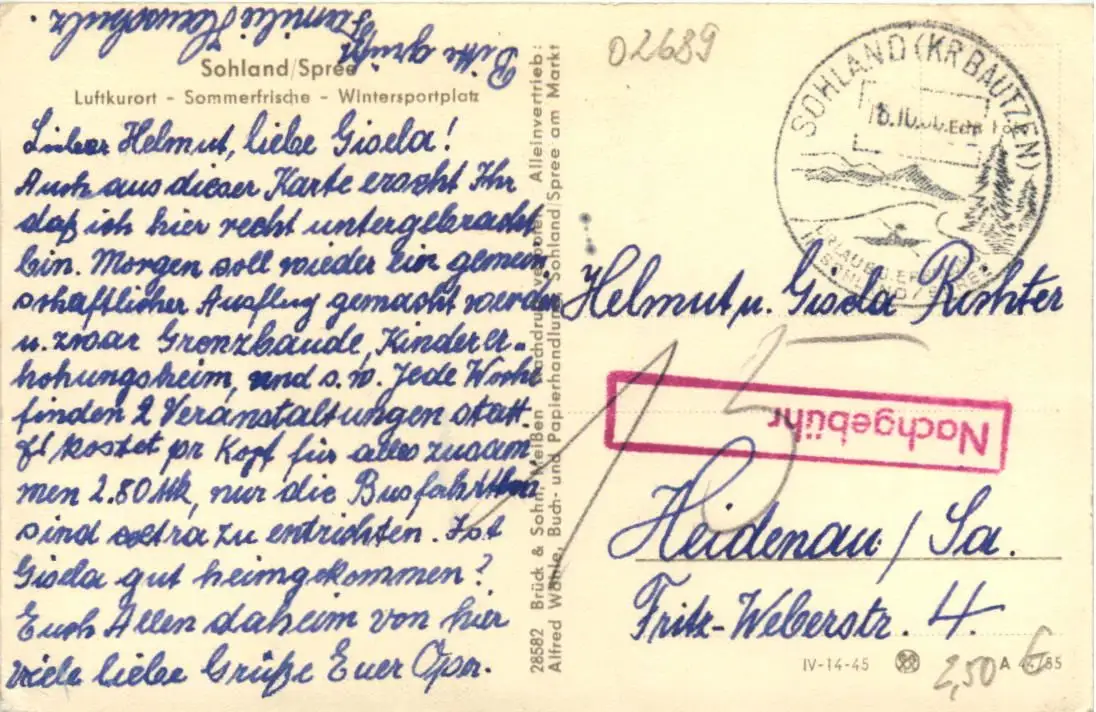 Bitte grüßt
Familie
Sohland/Spree
Luftkurort - Sommerfrische - Wintersportplatz
Lieber Helmut, liebe Gisela!
Auch aus dieser Karte erseht Ihr
daß ich hier recht untergebracht
bin. Morgen soll wieder ein gemein
schaftlicher Ausflug gemacht werden
u. zwar Grenzbaude, Kinderer-
hohlungsheim, und s. w. Jede Woche
finden 2 Veranstaltungen statt.
Es kostet pr Kopf für alles zusam
men 2.80 Mk, nur die Busfahrten
sind extra zu entrichten. Ist
Gisela gut heimgekommen?
Euch Allen daheim von hier
viele liebe Grüße Euer Opa.
28582 Brück & Sohn, Meißen Nachdruck verboten Alleinvertrieb:
Alfred Wähle, Buch- und Papierhandlung, Sohland/Spree am Markt
02689
SOHLAND (KR BAUTZEN)
Echt Foto
Helmut u. Gisela Richter
15
Nachgebühr
Heidenau / Sa.
Fritz-Weberstr. 4.
IV-14-45 A 44/55
2,50 €